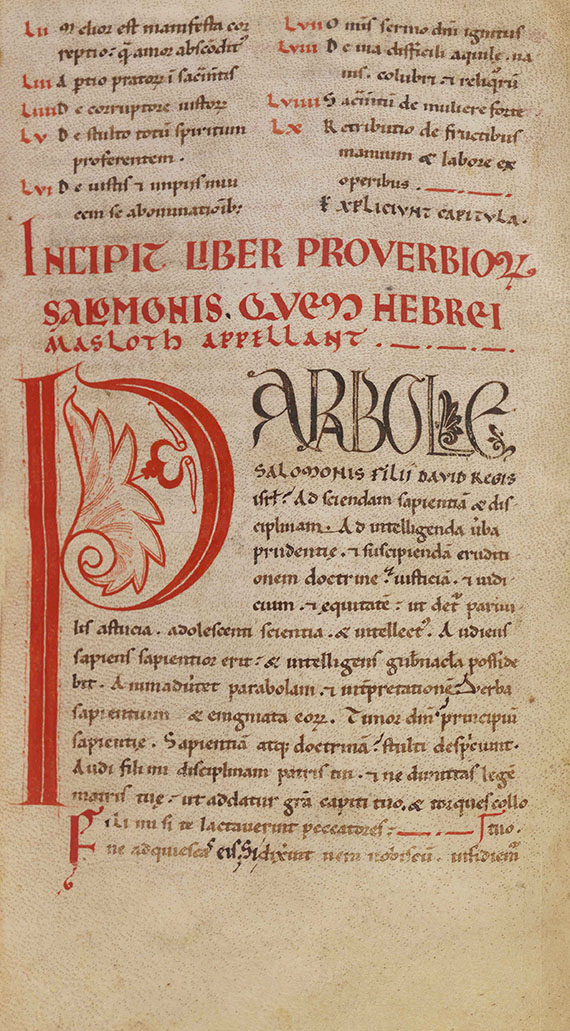 LII Melior est manifesta cor
reptio: q̄ amor abscōdit᷒
LIII Aptio pratorr̄ ī sacīnīs
LIIII De corruptore iustorr̄
LV De stulto totū spiritum
proferentem.
LVI De iustis ⁊ impiis inui
cem se abominatiōib;
LVII Omnis sermo dn̄i ignitus
LVIII De uia difficili aquile. na
uis. colubri. ⁊ reliq̄rū
LVIIII Sacīnīū de muliere forte
LX Retributio de fructibus
manuum & labore ex
operibus.
EXPLICIUNT CAPITULA.
INCIPIT LIBER PROVERBIOꝜ
SALOMONIS. QVEM HEBREI
MASLOTH APPELLANT.
PARABOLAE
SALOMONIS FILII DAVID REGIS
isrl̄: Ad sciendam sapientiā & dis
ciplinam. Ad intelligenda ūba
prudentię. ⁊ suscipienda eruditi
onem doctrine. iusticiā. ⁊ iudi
cium. ⁊ equitatē: ut det᷒ paruu
lis astucia. adolescenti scientia. & intellect᷒. Audiens
sapiens sapientior erit: & intelligens gub̄nacl̄a posside
bit. Animaduertet parabolam. ⁊ int̄pretationē. Verba
sapientium & enigmata eoꝝ. Timor dn̄i principiū
sapientię. Sapientiā atq; doctrinā: stulti desp̄ciunt.
Audi fili mi disciplinam patris tui. ⁊ ne dimittas legē
matris tuę: ut addatur grā capiti tuo. & torques collo
tuo.
Fili mi si te lactauerint peccatores:
ne adquiescas eis. Si dixerint ueni nobiscū. insidiem᷒